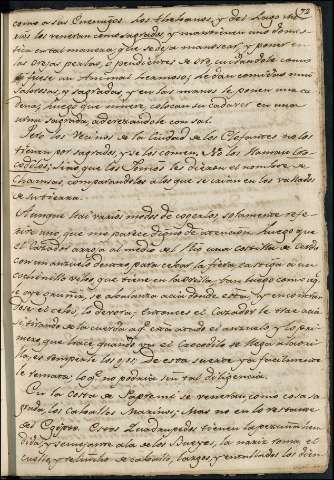 72
como a sus Enemigos. Los thebanos, y del Lago Mo
eris los veneran como sagrados, y mantienen uno domes
tico en tal manera, que se deja mansear, y poner en
las orejas perlas, o pendientes de Oro, cuidandole como
si fuese un Animal hermoso; le dan comidas mui
sabrosas, y sagradas, y en las manos le ponen una ca
dena; luego que muere, colocan su cadaver en una
urna sagrada, aderezandole con sal.
Pero los Vecinos de la Ciudad de los Elefantes no los
tienen por sagrados, y se los comen. No los llaman Coco
codrilos; sino que los Jonios les dieron el nombre de
Chamsas, comparandolos a los que se crian en los vallados
de su tierra.
Aunque hai varios modos de cogerlos, solamente refe
rire uno que me parece digno de atencion. Luego que
el Cazador arroja al medio del Rio una costilla de Cerdo
con un anzuelo dentro para cebar la fiera, castiga a un
cochinillo vivo que tiene en la orilla; tan luego como si
gue aquel gruñir, se abalanza acia donde esta, y encontran
dose el cebo, lo devora; Entonces el Cazador le trae acia
si tirando de la cuerda a q.e està atado el anzuelo, y lo pri
mero que hace quando ya el Cocodrilo se llega a la orilla
es taparle los ojos; de esta suerte ya facilmente
le remata, lo q.e no podria sin tal diligencia.
En la Costa de Papremi se veneran como cosa sa
grada, los caballos Marinos; Mas no en lo restante
del Egipto. Estos Quadrupedos tienen la pezuña hen
dida, y semejante a la de los Bueyes, la nariz roma, el
cuello, y relincho de caballo, largos, y ensalidos los dien